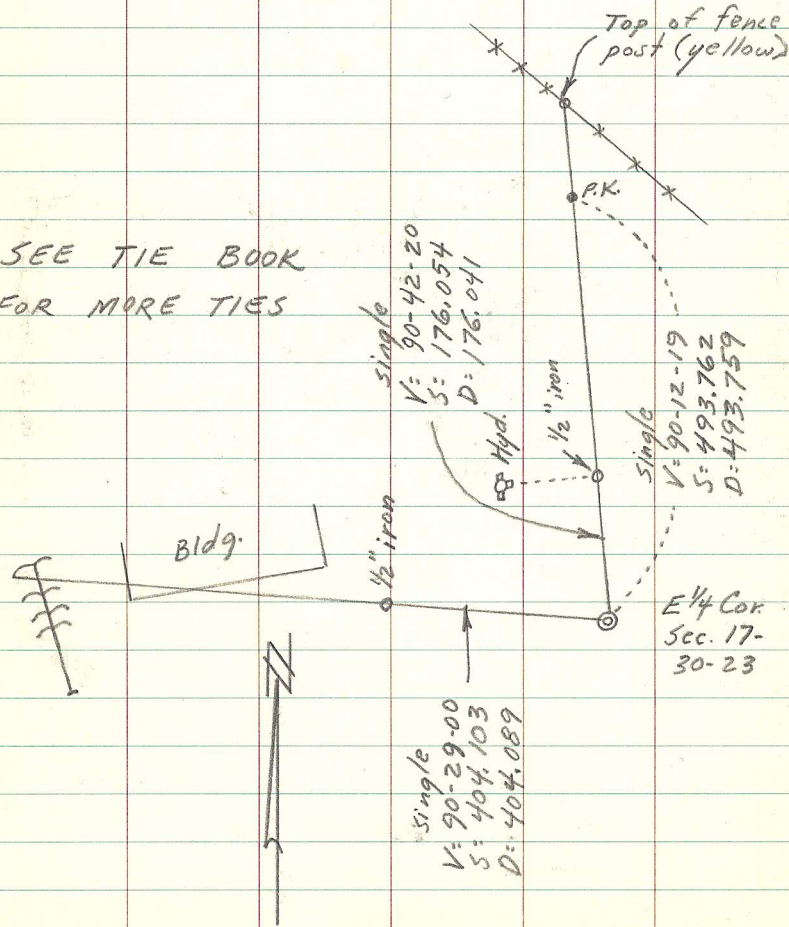 Top of fence
post (yellow)
P.K.
SEE TIE BOOK
FOR MORE TIES
single
V= 90-42-20
S= 176.054
D= 176.041
Hyd.
1/2" iron
single
V= 90-12-19
S= 493.762
D= 493.759
Bldg.
1/2" iron
E 1/4 Cor.
Sec. 17-
30-23
single
V= 90-29-00
S= 404.103
D= 404.089
N